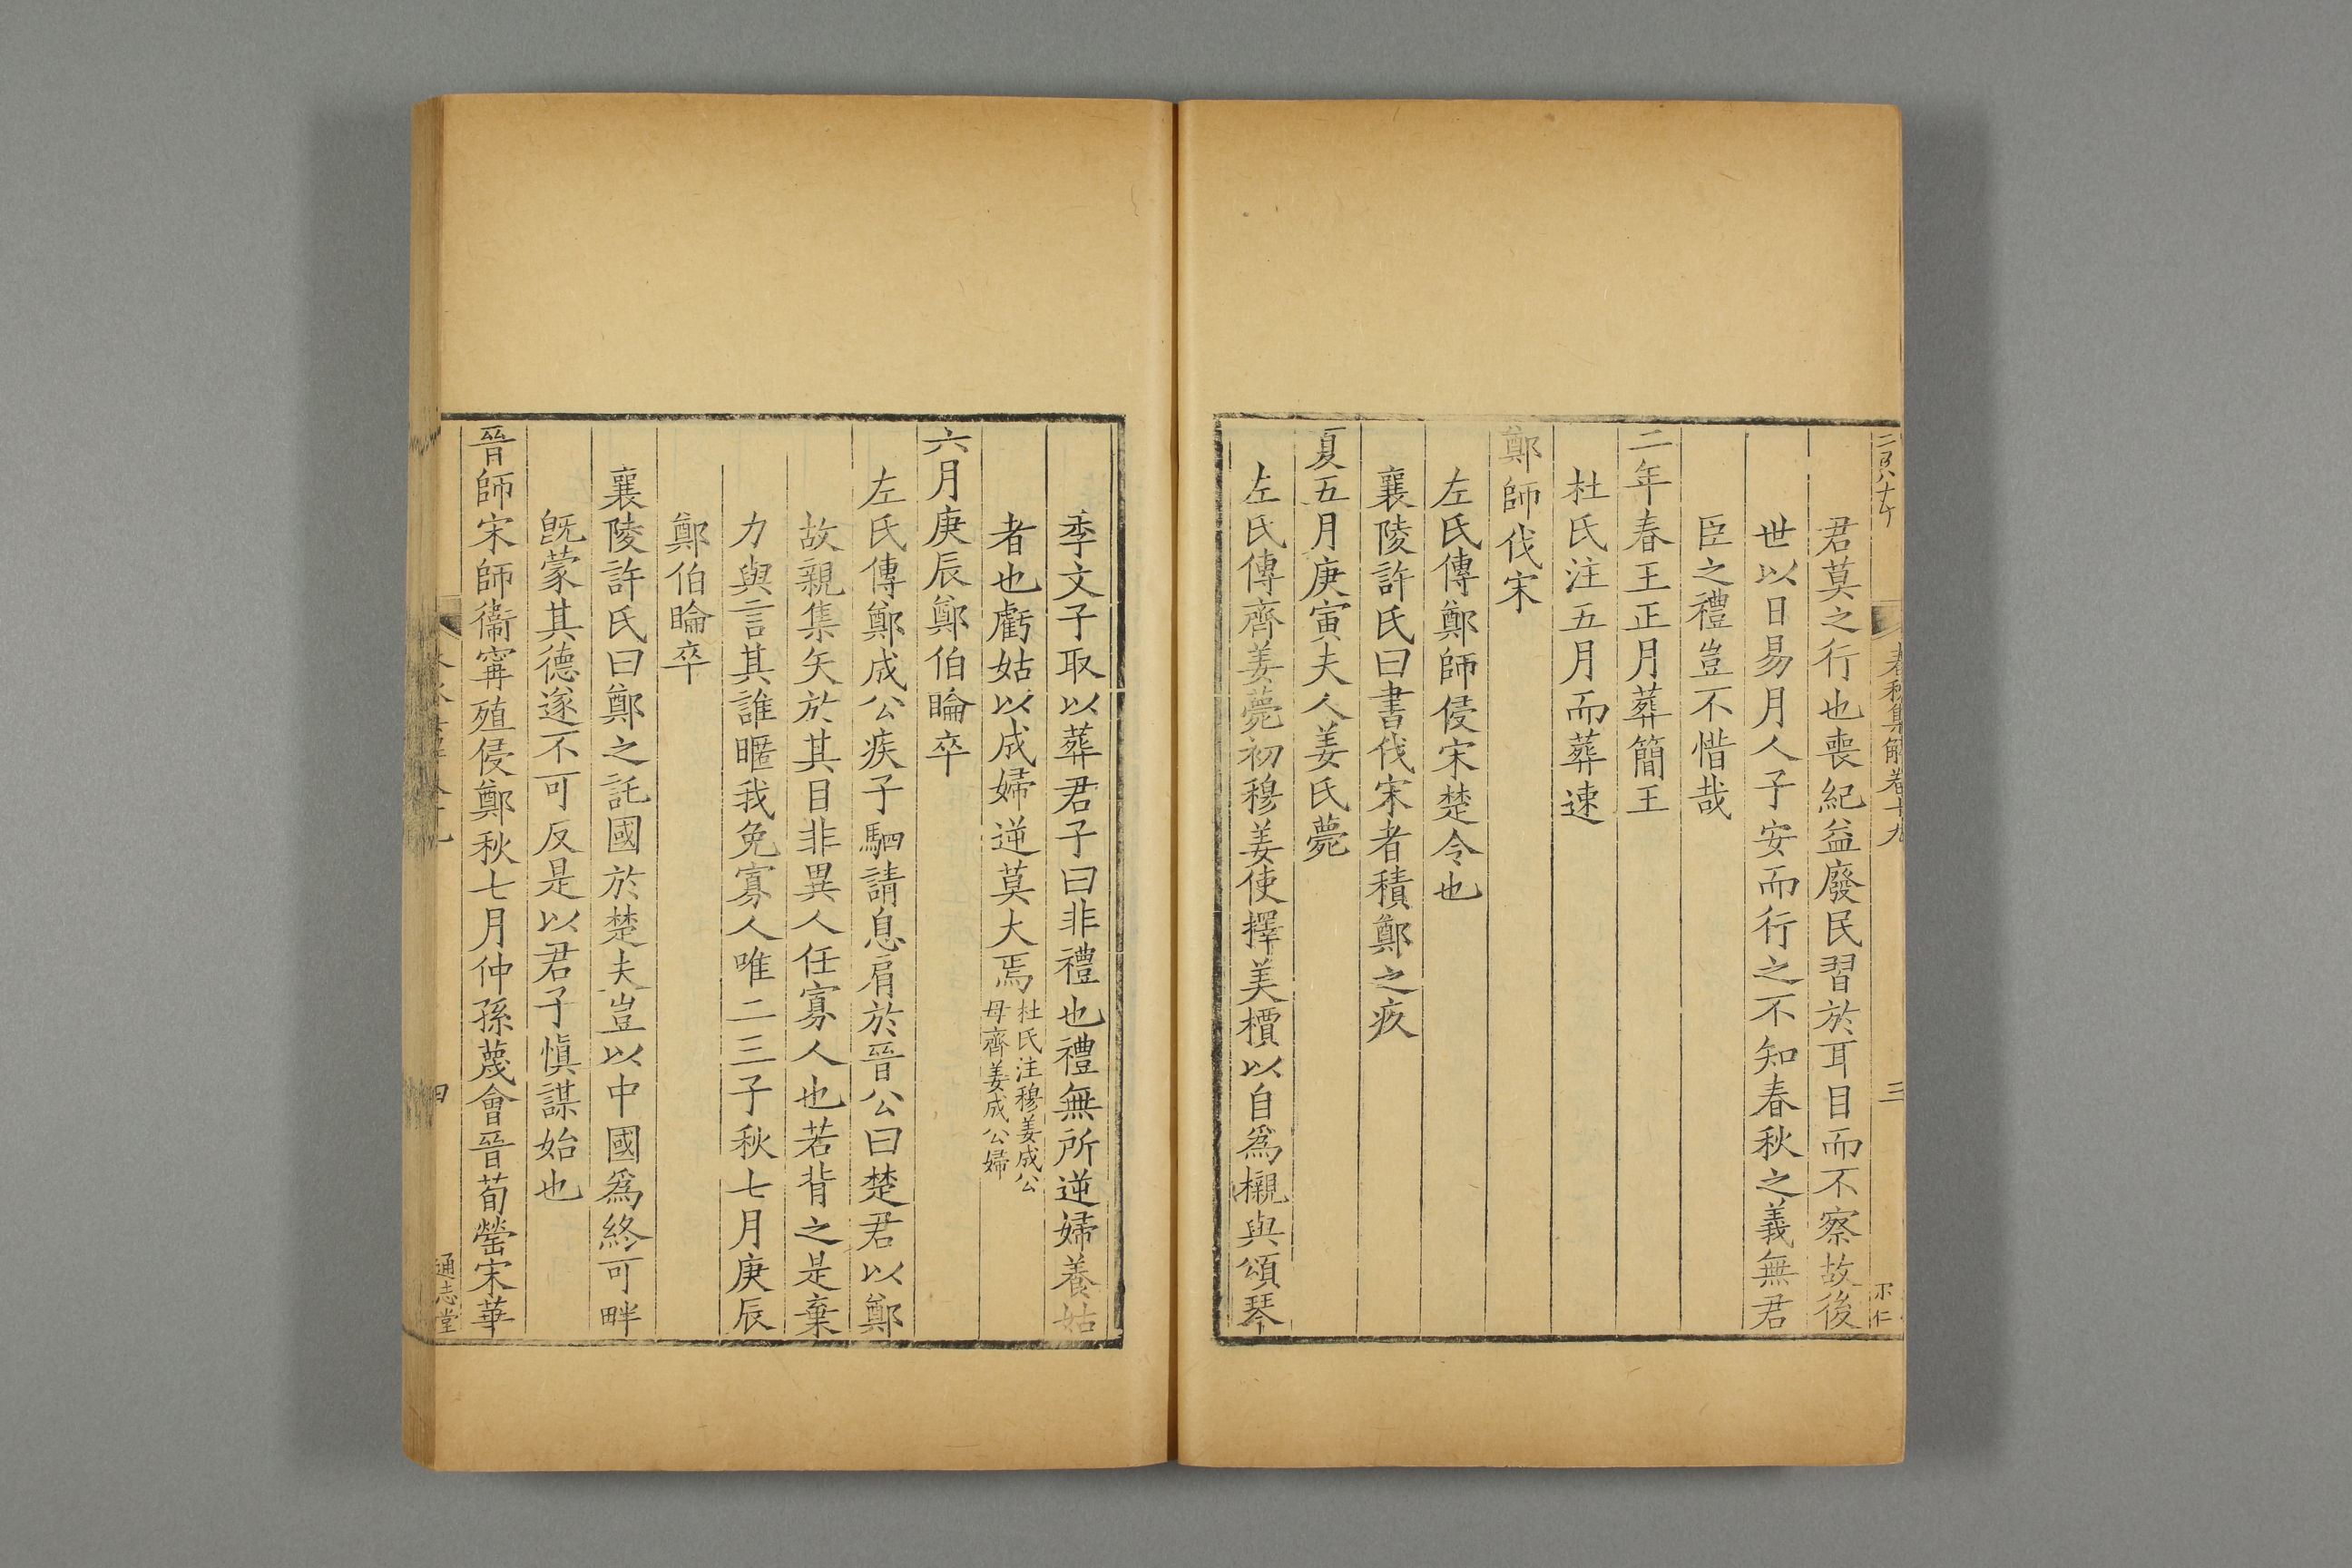 春秋集解卷十九
三
君莫之行也喪紀益廢民習於耳目而不察故後
世以日易月人子安而行之不知春秋之義無君
臣之禮豈不惜哉
二年春王正月葬簡王
杜氏注五月而葬速
鄭師伐宋
左氏傳鄭師侵宋楚令也
襄陵許氏曰書伐宋者積鄭之疚
夏五月庚寅夫人姜氏薨
左氏傳齊姜薨初穆姜使擇美檟以自爲櫬與頌琴
季文子取以葬君子曰非禮也禮無所逆婦養姑
者也虧姑以成婦逆莫大焉杜氏注穆姜成公
母齊姜成公婦
六月庚辰鄭伯睔卒
左氏傳鄭成公疾子駟請息肩於晉公曰楚君以鄭
故親集矢於其目非異人任寡人也若背之是棄
力與言其誰暱我免寡人唯二三子秋七月庚辰
鄭伯睔卒
襄陵許氏曰鄭之託國於楚夫豈以中國爲終可畔
旣蒙其德遂不可反是以君子愼謀始也
晉師宋師衞甯殖侵鄭秋七月仲孫蔑會晉荀罃宋華
四
通志堂